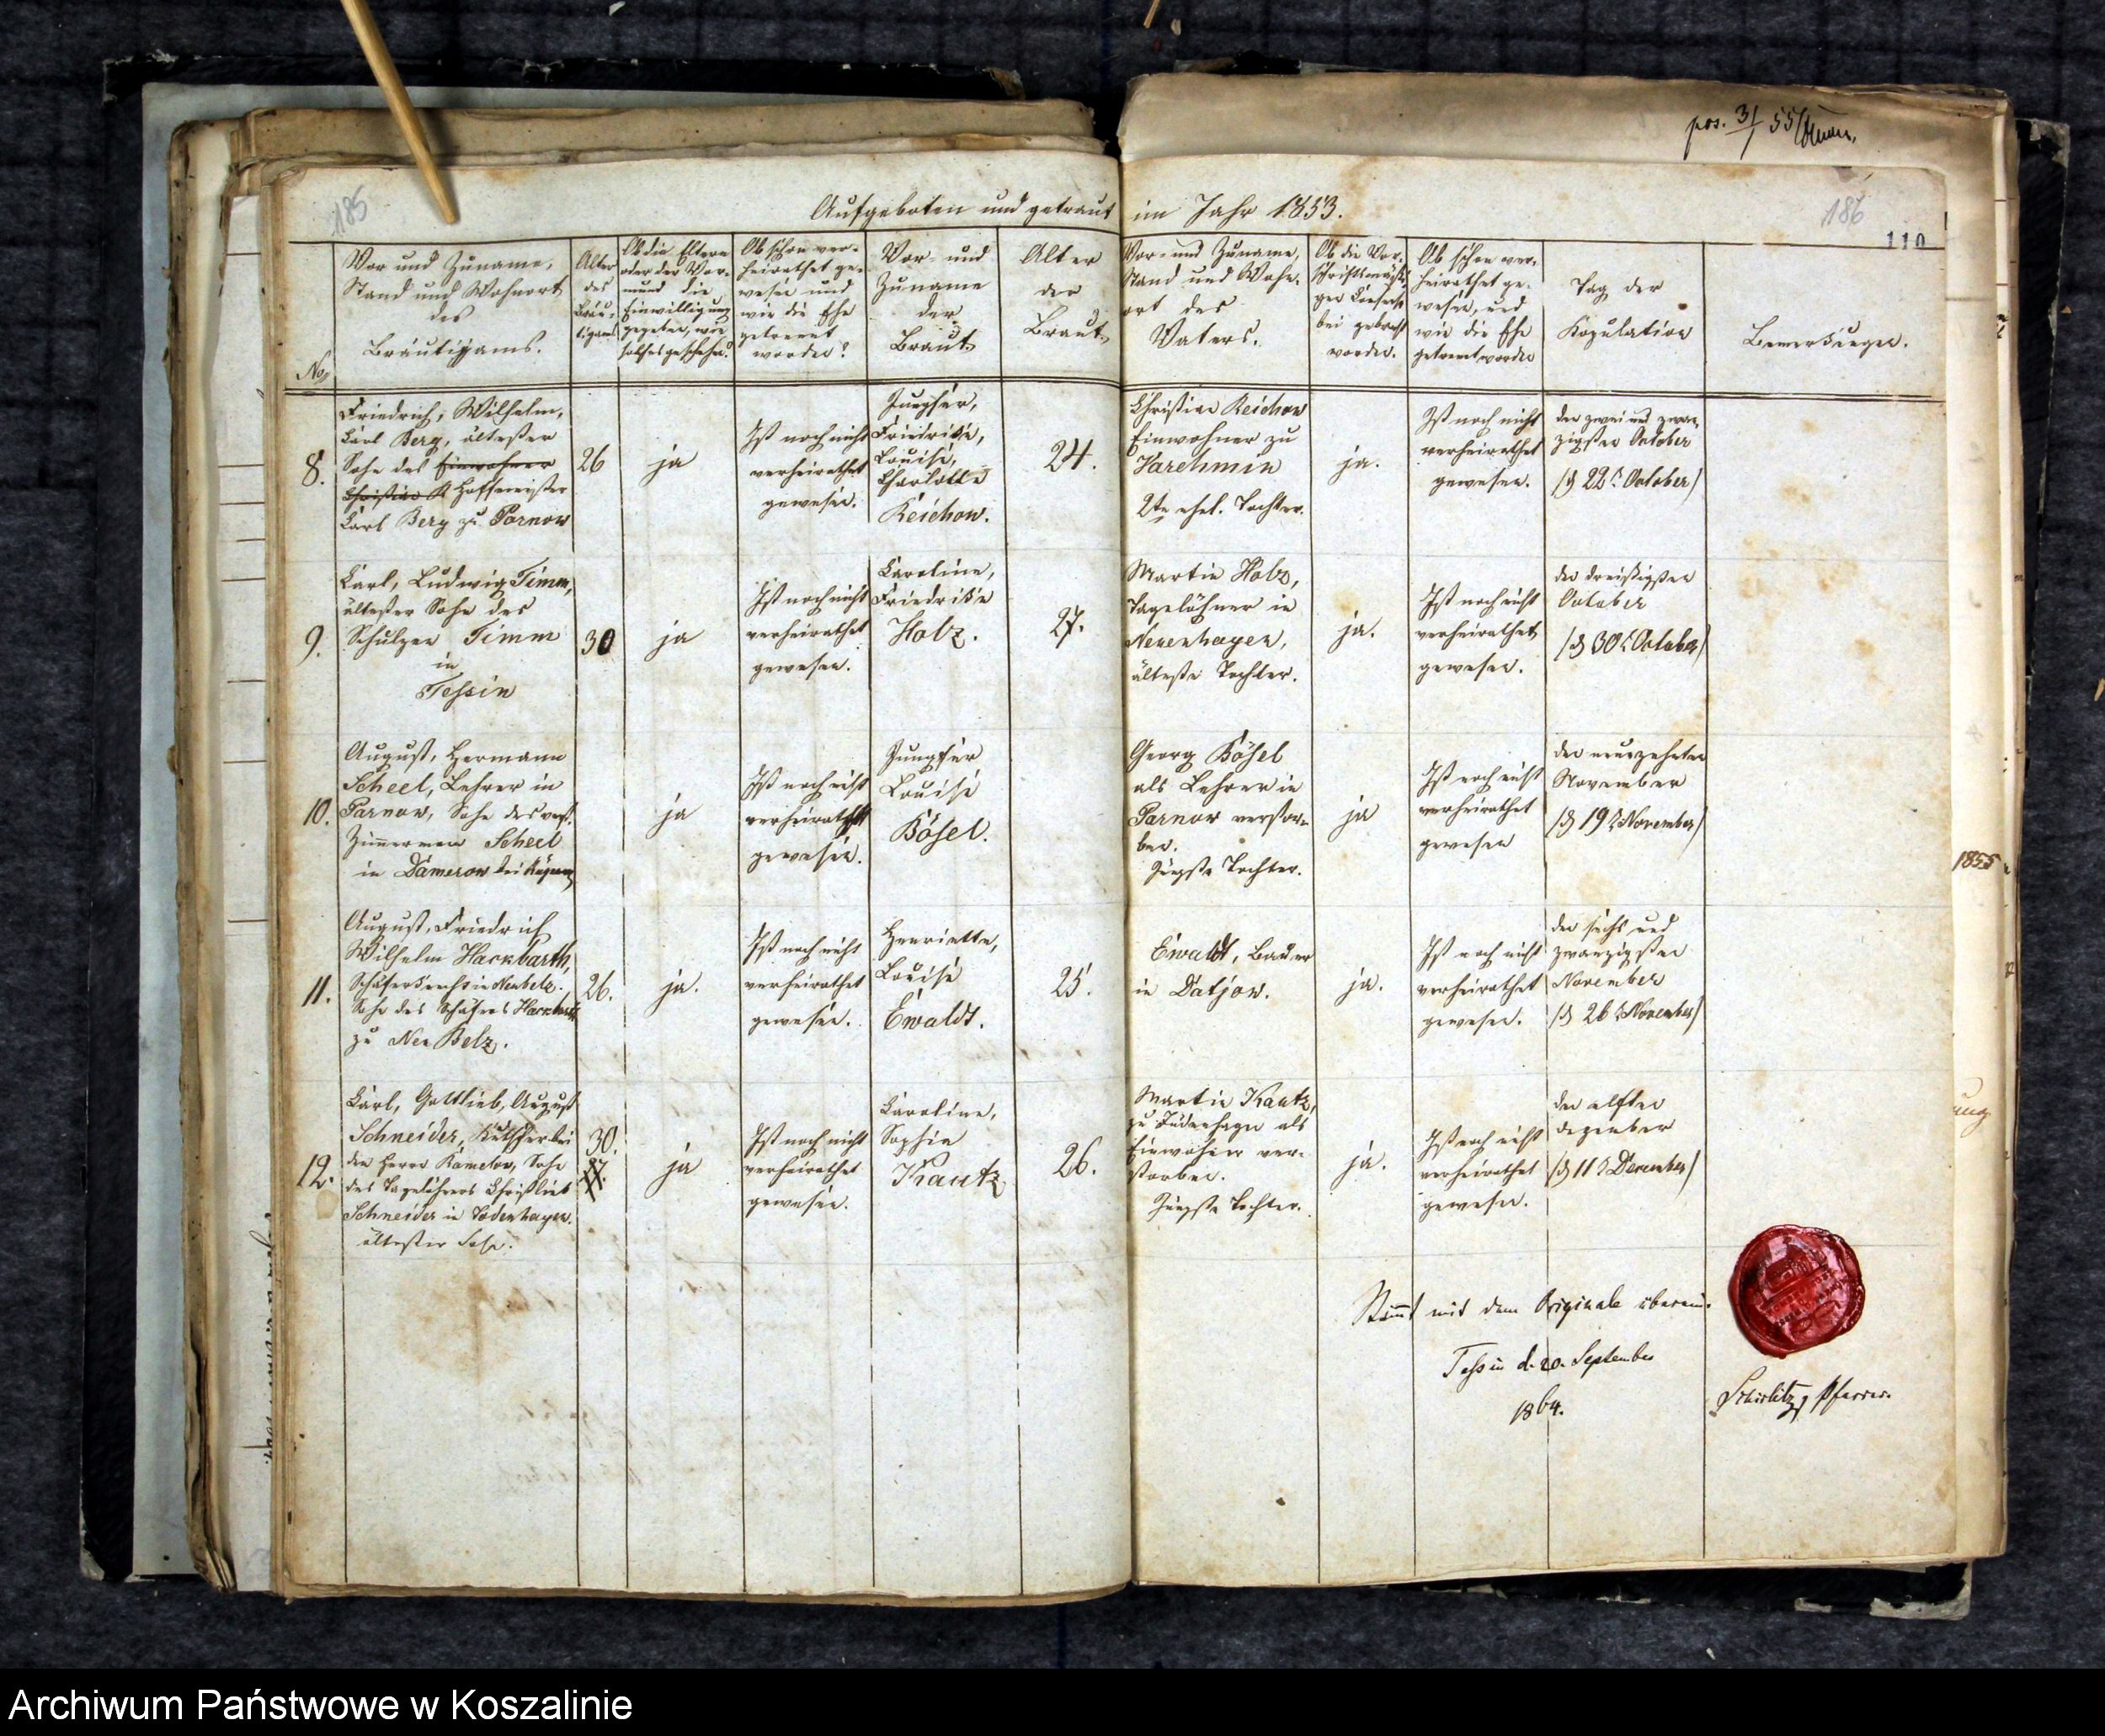 pos. 31/1 55
185
186
110
Aufgeboten und getraut im Jahr 1853.
No
Vor und Zuname,
Stand und Wohnort
des
Bräutigams.
Alter
des
Bräu-
tigams
Ob die Eltern
oder der Vor-
mund die
Einwilligung
gegeben, wie
solches geschehn?
Ob schon ver-
heirathet ge-
wesen und
wie die Ehe
getrennt
worden?
Vor- und
Zuname
der
Braut.
Alter
der
Braut.
Vor- und Zuname,
Stand und Wohn-
ort des
Vaters.
Ob die Vor-
schriftsmäßi-
ger Consens
bei gebracht
worden.
Ob schon ver-
heirathet ge-
wesen, und
wie die Ehe
getrennt worden
Tag der
Kopulation
Bemerkungen.
8.
Friedrich, Wilhelm,
Carl Berg, ältester
Sohn des Einwohner
Christian R Hoffmeister
Carl Berg zu Parnow
26
ja
Ist noch nicht
verheirathet
gewesen.
Jungfer,
Friedrike,
Louise,
Charlotte
Reichow.
24.
Christian Reichow
Einwohner zu
Varchmin
2te ehel. Tochter.
ja.
Ist noch nicht
verheirathet
gewesen.
den zwei und zwan-
zigsten October
(d 22t October)
9.
Carl, Ludwig Timm,
ältester Sohn des
Schulzen Timm
in
Tessin
30
ja
Ist noch nicht
verheirathet
gewesen.
Caroline,
Friedrike
Holz.
27.
Martin Holz,
Tagelöhner in
Neuenhagen,
älteste Tochter.
ja.
Ist noch nicht
verheirathet
gewesen.
den dreißigsten
October
(d 30t October)
10.
August, Hermann
Scheel, Lehrer in
Parnow, Sohn des verst.
Zimmermann Scheel
in Damerow bei
ja
Ist noch nicht
verheirathet
gewesen.
Jungfer
Louise
Bösel.
Georg Bösel
als Lehrer in
Parnow verstor-
ben.
Jüngste Tochter.
ja
Ist noch nicht
verheirathet
gewesen
den neunzehnten
November
(d 19t November)
11.
August, Friedrich
Wilhelm Hackbarth,
Schäferknecht in Neubelz.
Sohn des Schäfers Hackbarth
zu Neu Belz.
26.
ja.
Ist noch nicht
verheirathet
gewesen.
Henriette,
Louise
Ewaldt.
25.
Ewaldt, Bauer
in Datjow.
ja.
Ist noch nicht
verheirathet
gewesen.
den sechs und
zwanzigsten
November
(d 26t November)
12.
Carl, Gottlieb, August
Schneider, Kutscher bei
den Herrn Kamelow, Sohn
des Tagelöhners Christlieb
Schneider in Todenhagen.
ältester Sohn.
30.
27.
ja
Ist noch nicht
verheirathet
gewesen.
Caroline,
Sophie
Krautz
26.
Martin Krautz,
zu Todenhagen als
Einwohner ver-
storben.
Jüngste Tochter.
ja.
Ist noch nicht
verheirathet
gewesen.
den elften
Dezember
(d 11t December)
Stimmt mit dem Originale überein.
Tessin d. 20. September
1864.
Pfarrer.
1855
ung
Archiwum Państwowe w Koszalinie